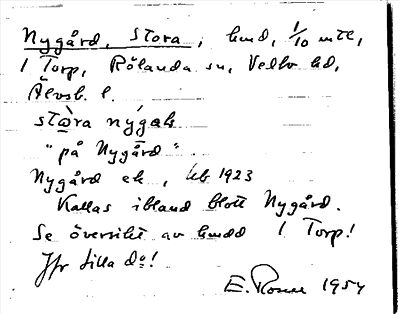 Nygård, Stora, hmd, 1/10 mtl,
1 Torp, Rölanda sn, Vedbo hd,
Älvsb. l.
stɷra nýgaɫs
"på Nygård".
Nygård ek, 1923
Kallas ibland blott Nygård.
Se översikt av hmdd 1 Torp!
Jfr Lilla Do!
E. Rosell 1954